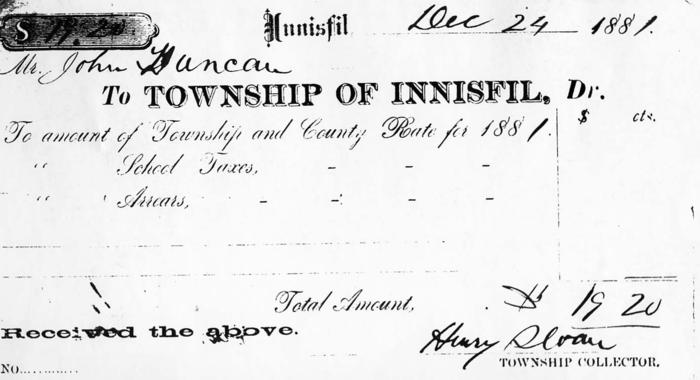 $ 19.20 Innisfil Dec 24 1881.
Mr. John Duncan
To TOWNSHIP OF INNISFIL, Dr.
$ cts.
To amount of Township and County Rate for 1881.
" School Taxes, - - -
" Arrears, - - - -
Total Amount, $ 19 20
Received the above.
Henry Sloan
TOWNSHIP COLLECTOR.
No..............